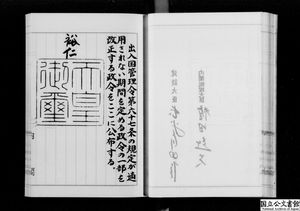 出入国管理令第六十七条の規定が適
用されない期間を定める政令の一部を
改正する政令をここに公布する。
裕仁
天皇
御璽
内閣総理大臣
建設大臣
国立公文書館
National Archives of Japan